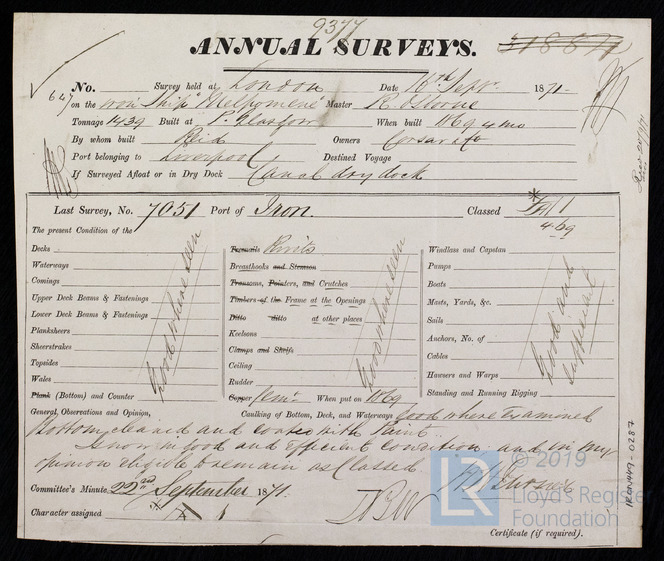 9377
ANNUAL SURVEYS.
318871
No. 647 Survey held at London Date 16th Septr. 1871-
on the Iron Ship "Melpomene" Master R. Osborne
Tonnage 1439 Built at P. Glasgow When built 1869 4 mo
By whom built Reid Owners Corsar & Co
Port belonging to Liverpool Destined Voyage
If Surveyed Afloat or in Dry Dock Canal dry dock
Last Survey, No. 7051 Port of Iron. Classed
4.69
The present Condition of the
Decks
Waterways
Comings
Upper Deck Beams & Fastenings
Lower Deck Beams & Fastenings
Planksheers
Sheerstrakes
Topsides
Wales
Plank (Bottom) and Counter
Good where seen
Treenails Rivets
Breasthooks and Stemson
Transoms, Pointers, and Crutches
Timbers of the Frame at the Openings
Ditto ditto at other places
Keelsons
Clamps and Shelfs
Ceiling
Rudder
Copper Cemt. When put on 1869
Good where seen
Windlass and Capstan
Pumps
Boats
Masts, Yards, &c.
Sails
Anchors, No. of
Cables
Hawsers and Warps
Standing and Running Rigging
Good and sufficient
General, Observations and Opinion, Caulking of Bottom, Deck, and Waterways Good where Examined
Bottom cleaned and coated with Paint.
Is now in good and efficient condition and in my
opinion eligible to remain as Classed.
Committee's Minute 22nd September 1871.
Character assigned
Certificate (if required).
IRON449-0287
LR © 2019
Lloyd's Register
Foundation